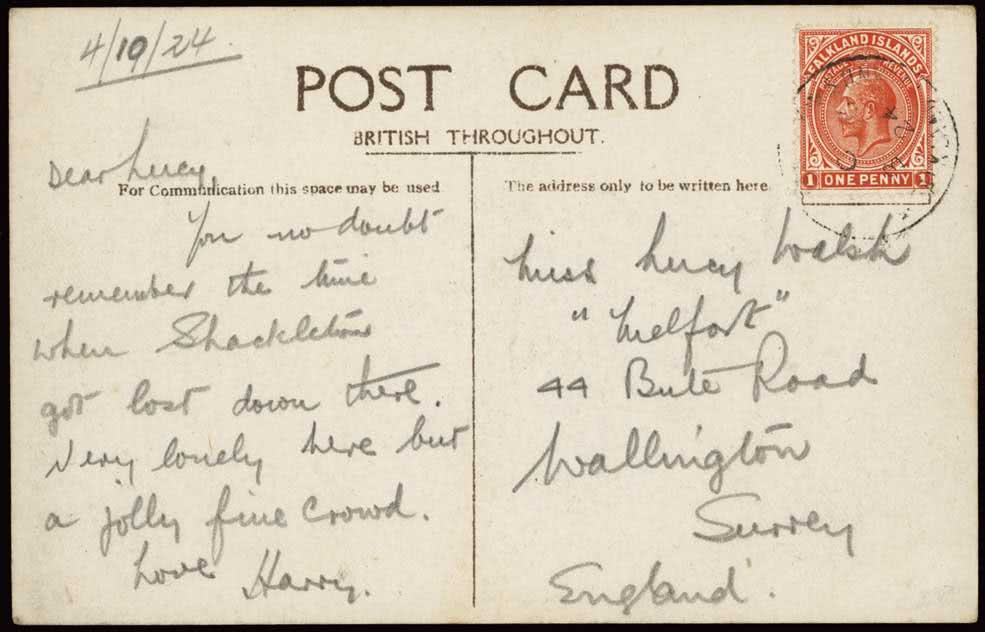 4/10/24
POST CARD
BRITISH THROUGHOUT.
For Communication this space may be used
Dear Lucy,
You no doubt
remember the time
when Shackleton
got lost down there.
Very lonely here but
a jolly fine crowd.
Love Harry.
The address only to be written here
Miss Lucy Walsh
"Melfort"
44 Bute Road
Wallington
Surrey
England.
FALKLAND ISLANDS
POSTAGE & REVENUE
1 ONE PENNY 1